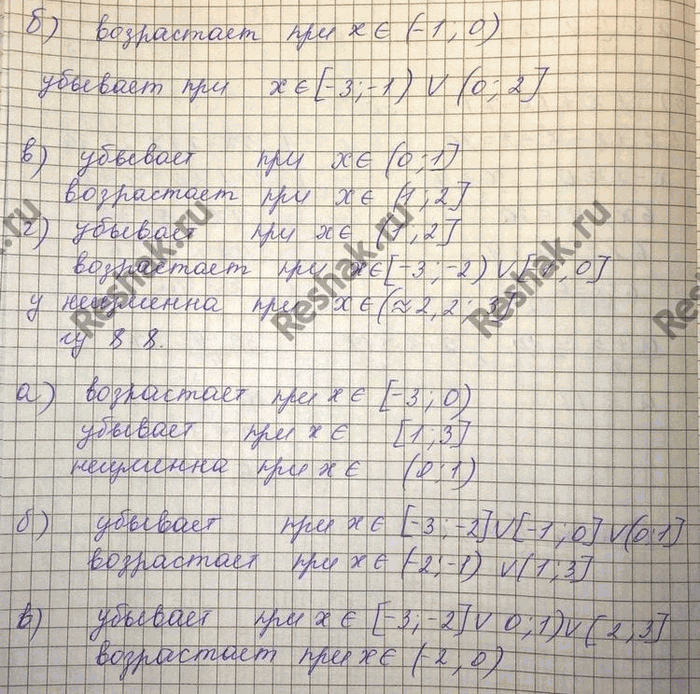 б) возрастает при x ∈ (-1; 0)
убывает при x ∈ [-3; -1) ∨ (0; 2]
в) убывает при x ∈ (0; 1]
возрастает при x ∈ (1; 2]
г) убывает при x ∈ (1, 2]
возрастает при x ∈ [-3; -2) ∨ [ ; 0]
у неизменна при x ∈ (≈2,2; 3)
а) возрастает при x ∈ [-3; 0)
убывает при x ∈ [1; 3]
неизменна при x ∈ (0; 1)
б) убывает при x ∈ [-3; -2] ∨ [-1; 0] ∨ (0; 1]
возрастает при x ∈ (-2; -1) ∨ (1; 3]
в) убывает при x ∈ [-3; -2] ∨ 0; 1) ∨ (2; 3]
возрастает при x ∈ (-2, 0)
Reshak.ru
Reshak.ru
Reshak.ru